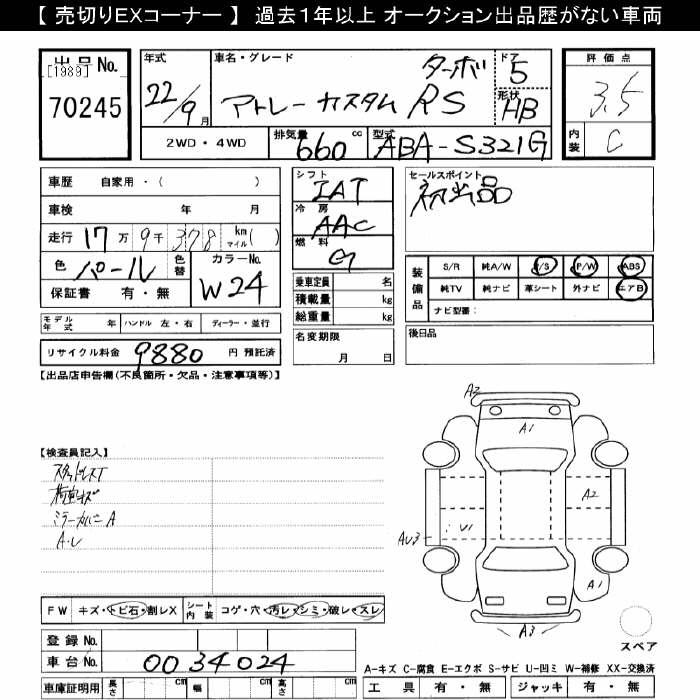 【 売切りEXコーナー 】 過去1年以上 オークション出品歴がない車両
出品 No.
[1989]
70245
年式
22/9月
車名・グレード
ターボ
アトレーカスタム RS
ドア 5
形状 HB
2WD ・ 4WD
排気量 660 cc
型式 ABA-S321G
評価点
3.5
内装 C
車歴 自家用・( )
車検 年 月
走行 17万 9千 378 km マイル( )
色 パール 色替
カラーNo. W24
保証書 有・無
シフト IAT
冷房 AAC
燃料 G
乗車定員 名
積載量 kg
総重量 kg
セールスポイント
初出品
装備品
S/R 純A/W P/S P/W ABS
純TV 純ナビ 革シート 外ナビ エアB
ナビ型番:
モデル年式 年 ハンドル 左・右 ディーラー・並行
リサイクル料金 9880 円 預託済
名変期限
月 日
後日品
【出品店申告欄(不良箇所・欠品・注意事項等)】
【検査員記入】
ミラーカバー A
A.U
A2
A1
A2
U1
AU3
A1
A3
スペア
FW キズ・トビ石・割レX
シート内装 コゲ・穴・汚レ・シミ・破レ・スレ
登録 No.
車台 No. 0034024
車庫証明用 長さ cm 幅 cm 高さ cm
A-キズ C-腐食 E-エクボ S-サビ U-凹ミ W-補修 XX-交換済
工具 有・無 ジャッキ 有・無